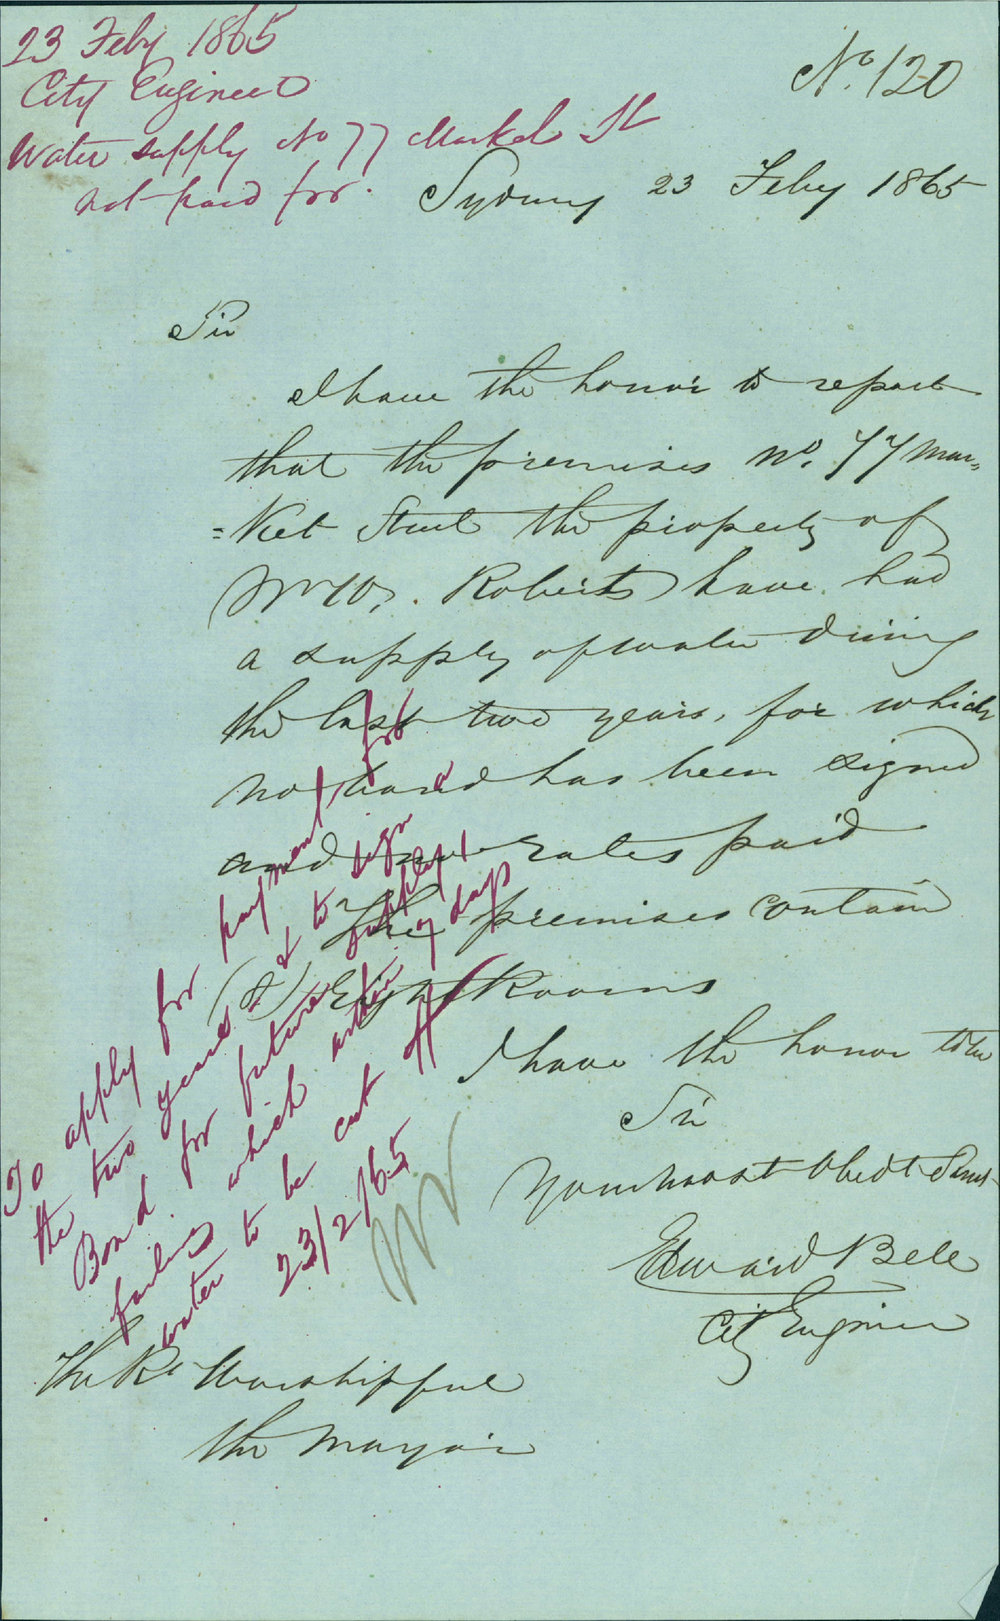 23 Feby 1865
City Engineer
Water supply No 77 Market St
not paid for.
No. 120
Sydney 23 Feby 1865
Sir
I have the honor to report
that the premises No. 77 Mar=
=ket Street the property of
Mr W. Roberts have had
a supply of water during
the last two years, for which
no bond has been signed
and no rates paid
The premises contain
(8) Eight Rooms
I have the honor to be
Sir
Your most Obedt Servt
Edward Bell
City Engineer
The Rt Worshipful
the Mayor
To apply for payment for
the two years & to sign a
Bond for future supply,
failing which within 7 days
water to be cut off
23/2/65